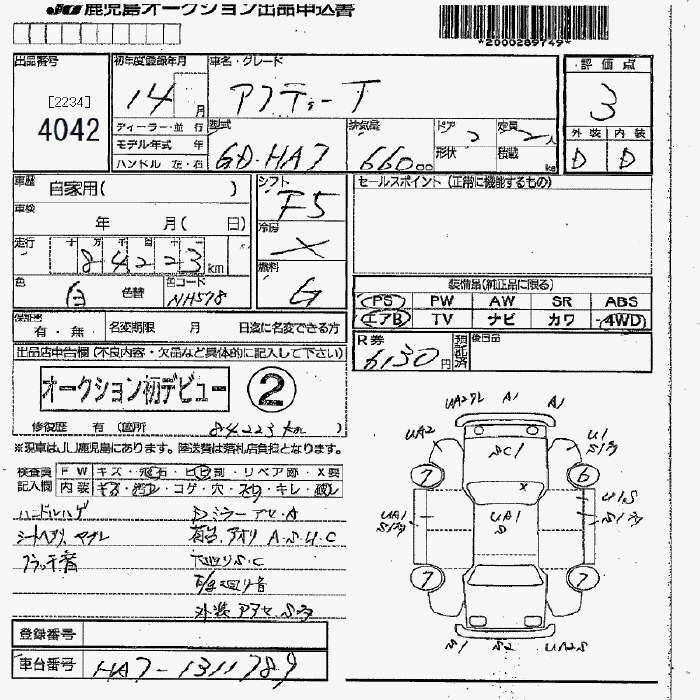 JU 鹿児島オークション出品申込書
*2000289749*
出品番号
[2234]
4042
初年度登録年月
14 月
車名・グレード
アクティー T
評価点
3
外装 内装
D D
ディーラー・並行
モデル年式 年
ハンドル 左・右
型式
GD-HA7
排気量
660 cc
ドア 2
形状
定員 2人
積載 kg
車歴 自家用( )
車検
年 月( 日)
走行 十 万 千 百 十 一
84223 km
色 白 色替
色コード NH578
シフト
F5
冷房
×
燃料
G
セールスポイント (正常に機能するもの)
装備品(純正品に限る)
PS PW AW SR ABS
エアB TV ナビ カワ 4WD
保証書
有・無 名変期限 月 日迄に名変できる方
R券 6130円
預託済
後日品
出品店申告欄 (不良内容・欠品など具体的に記入して下さい)
オークション初デビュー
2
修復歴 有 (箇所
84223km )
※現車はJU鹿児島にあります。陸送費は落札店負担となります。
検査員記入欄
FW キズ・飛石・ヒビ割・リペア跡・X要
内装 キズ・汚レ・コゲ・穴・スリ・キレ・破レ
ハンドルハゲ
ミラー アセ・A
荷台、アオリ A.S.U.C
下廻りS.C
外装 アセ、S多
UA2 A1 A1
UA2 U1
SC1
7 6
×
UA1 UA1 U1S
S
7 7
S1 S2 UA2S
登録番号
車台番号 HA7-1311789